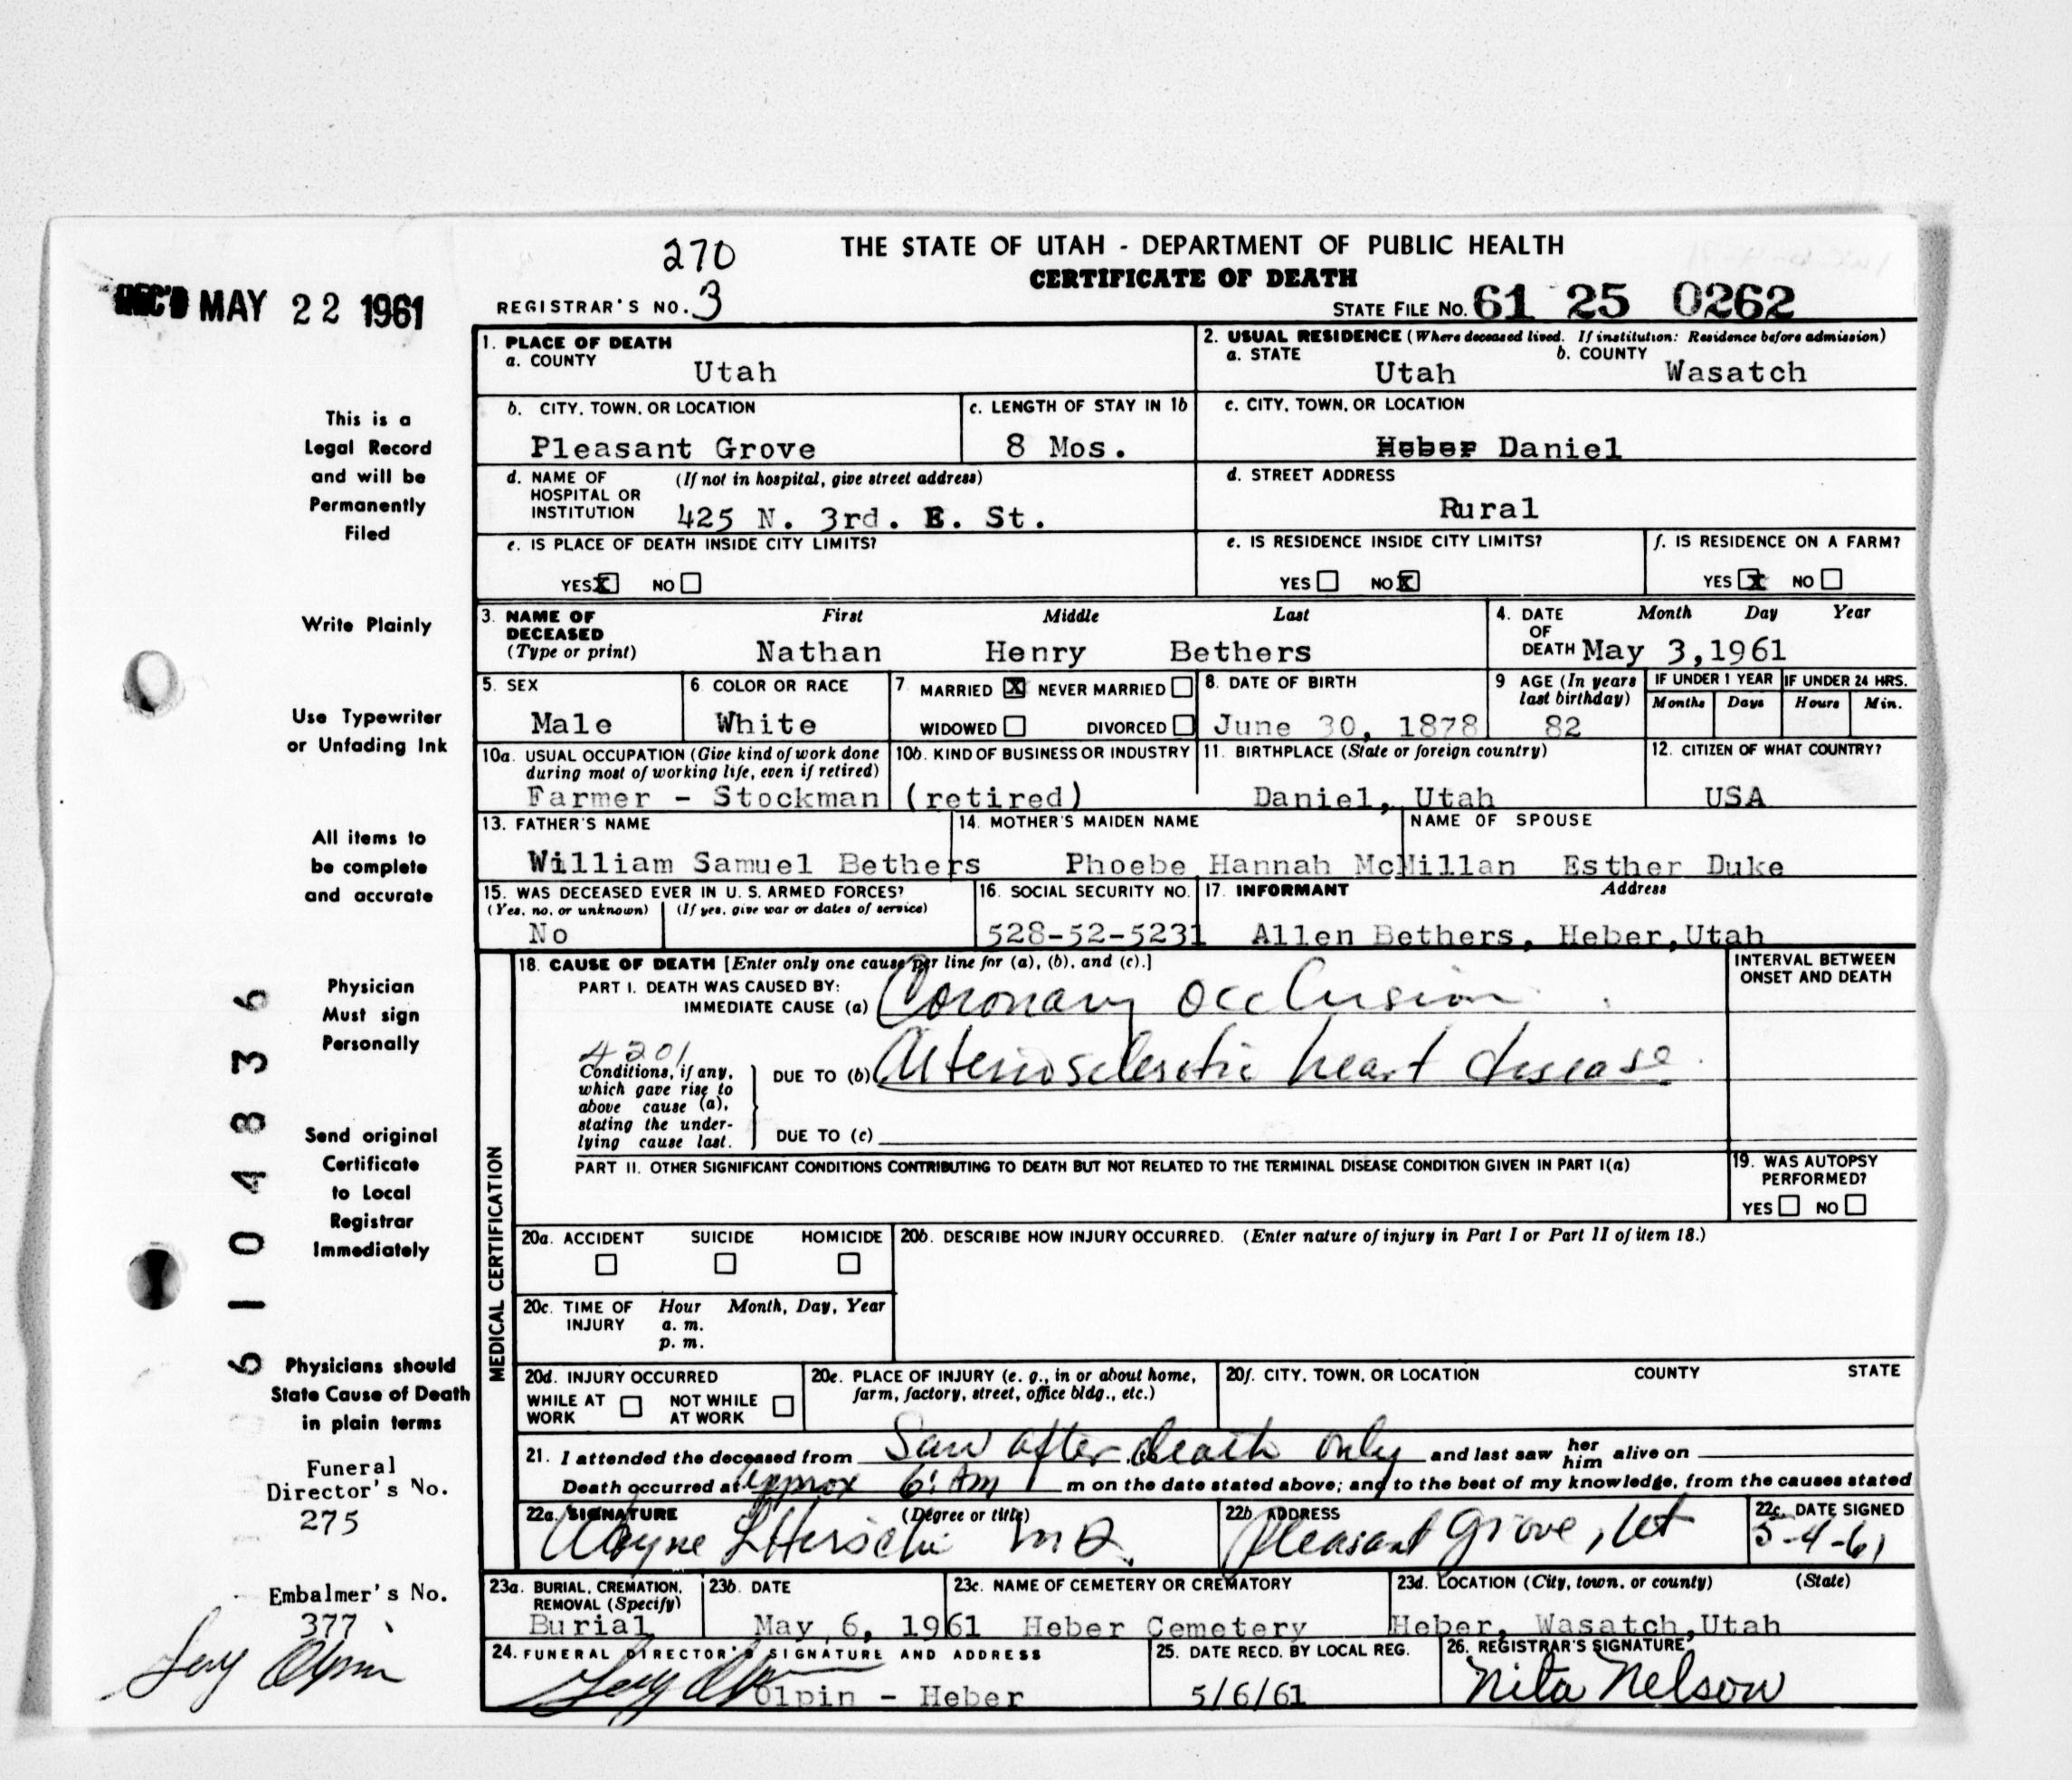 270
THE STATE OF UTAH - DEPARTMENT OF PUBLIC HEALTH
CERTIFICATE OF DEATH
REC'D MAY 22 1961
REGISTRAR'S NO. 3
STATE FILE NO. 61 25 0262
1. PLACE OF DEATH
a. COUNTY
Utah
2. USUAL RESIDENCE (Where deceased lived. If institution: Residence before admission)
a. STATE b. COUNTY
Utah Wasatch
b. CITY, TOWN, OR LOCATION
Pleasant Grove
c. LENGTH OF STAY IN 1b
8 Mos.
c. CITY, TOWN, OR LOCATION
Heber Daniel
d. NAME OF (If not in hospital, give street address)
HOSPITAL OR
INSTITUTION 425 N. 3rd. E. St.
d. STREET ADDRESS
Rural
e. IS PLACE OF DEATH INSIDE CITY LIMITS?
YES X NO
e. IS RESIDENCE INSIDE CITY LIMITS?
YES NO X
f. IS RESIDENCE ON A FARM?
YES X NO
3. NAME OF First Middle Last
DECEASED
(Type or print) Nathan Henry Bethers
4. DATE Month Day Year
OF
DEATH May 3,1961
5. SEX
Male
6. COLOR OR RACE
White
7. MARRIED X NEVER MARRIED
WIDOWED DIVORCED
8. DATE OF BIRTH
June 30, 1878
9 AGE (In years
last birthday)
82
IF UNDER 1 YEAR
Months Days
IF UNDER 24 HRS.
Hours Min.
10a. USUAL OCCUPATION (Give kind of work done
during most of working life, even if retired)
Farmer - Stockman
10b. KIND OF BUSINESS OR INDUSTRY
(retired)
11. BIRTHPLACE (State or foreign country)
Daniel, Utah
12. CITIZEN OF WHAT COUNTRY?
USA
13. FATHER'S NAME
William Samuel Bethers
14. MOTHER'S MAIDEN NAME
Phoebe Hannah McMillan
NAME OF SPOUSE
Esther Duke
15. WAS DECEASED EVER IN U. S. ARMED FORCES?
(Yes, no, or unknown) (If yes, give war or dates of service)
No
16. SOCIAL SECURITY NO.
528-52-5231
17. INFORMANT Address
Allen Bethers, Heber,Utah
MEDICAL CERTIFICATION
18. CAUSE OF DEATH [Enter only one cause per line for (a), (b), and (c).]
PART I. DEATH WAS CAUSED BY:
IMMEDIATE CAUSE (a) Coronary occlusion
INTERVAL BETWEEN
ONSET AND DEATH
4201
Conditions, if any,
which gave rise to
above cause (a),
stating the under-
lying cause last.
DUE TO (b) Arteriosclerotic heart disease
DUE TO (c)
PART II. OTHER SIGNIFICANT CONDITIONS CONTRIBUTING TO DEATH BUT NOT RELATED TO THE TERMINAL DISEASE CONDITION GIVEN IN PART I(a)
19. WAS AUTOPSY
PERFORMED?
YES NO
20a. ACCIDENT SUICIDE HOMICIDE
20b. DESCRIBE HOW INJURY OCCURRED. (Enter nature of injury in Part I or Part II of item 18.)
20c. TIME OF Hour Month, Day, Year
INJURY a. m.
p. m.
20d. INJURY OCCURRED
WHILE AT NOT WHILE
WORK AT WORK
20e. PLACE OF INJURY (e. g., in or about home,
farm, factory, street, office bldg., etc.)
20f. CITY, TOWN, OR LOCATION COUNTY STATE
21. I attended the deceased from Saw after death only and last saw her him alive on
Death occurred at approx 6: AM m on the date stated above; and to the best of my knowledge, from the causes stated
22a. SIGNATURE (Degree or title)
Wayne L Hirschi MD.
22b. ADDRESS
Pleasant Grove, Ut
22c. DATE SIGNED
5-4-61
23a. BURIAL, CREMATION,
REMOVAL (Specify)
Burial
23b. DATE
May 6, 1961
23c. NAME OF CEMETERY OR CREMATORY
Heber Cemetery
23d. LOCATION (City, town, or county) (State)
Heber, Wasatch,Utah
24. FUNERAL DIRECTOR'S SIGNATURE AND ADDRESS
Olpin - Heber
25. DATE RECD. BY LOCAL REG.
5/6/61
26. REGISTRAR'S SIGNATURE
Nita Nelson
This is a
Legal Record
and will be
Permanently
Filed
Write Plainly
Use Typewriter
or Unfading Ink
All items to
be complete
and accurate
Physician
Must sign
Personally
Send original
Certificate
to Local
Registrar
Immediately
Physicians should
State Cause of Death
in plain terms
Funeral
Director's No.
275
Embalmer's No.
377
6104836